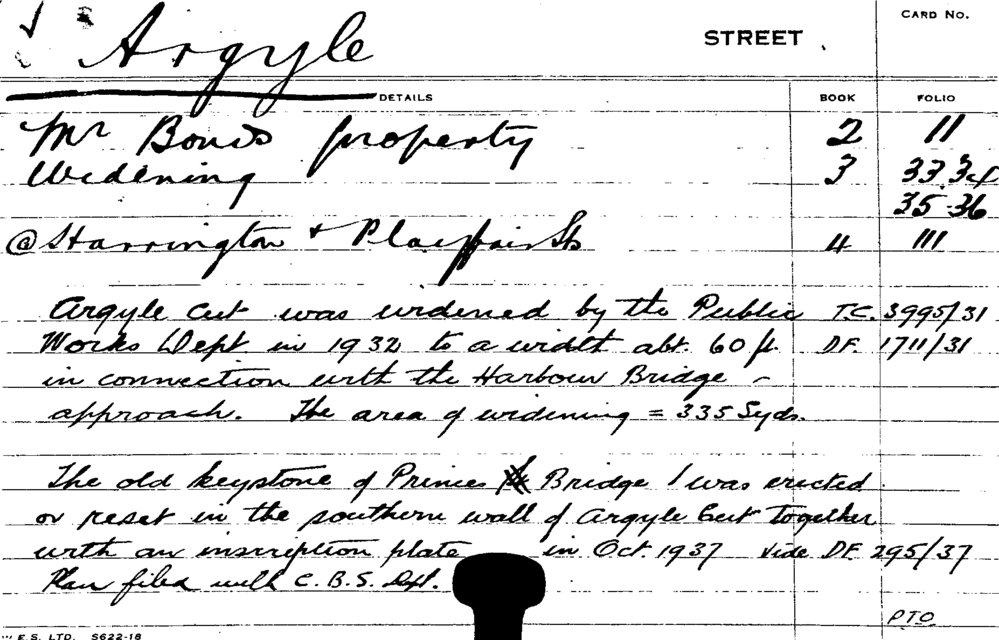 Argyle STREET CARD No.
DETAILS BOOK FOLIO
Mr Bond's property 2 11
Widening 3 33 34
35-36
@ Harrington & Playfair Sts 4 111
Argyle Cut was widened by the Public T.C. 3995/31
Works Dept in 1932 to a width abt. 60 ft. D.F. 1711/31
in connection with the Harbour Bridge -
approach. The area of widening = 335 Syds.
The old keystone of Princes Bridge was erected
or reset in the southern wall of Argyle Cut together
with an inscription plate in Oct. 1937 vide D.F. 295/37
Plan filed with C.B.S. Dept.
PTO
W E.S. LTD. S622-18